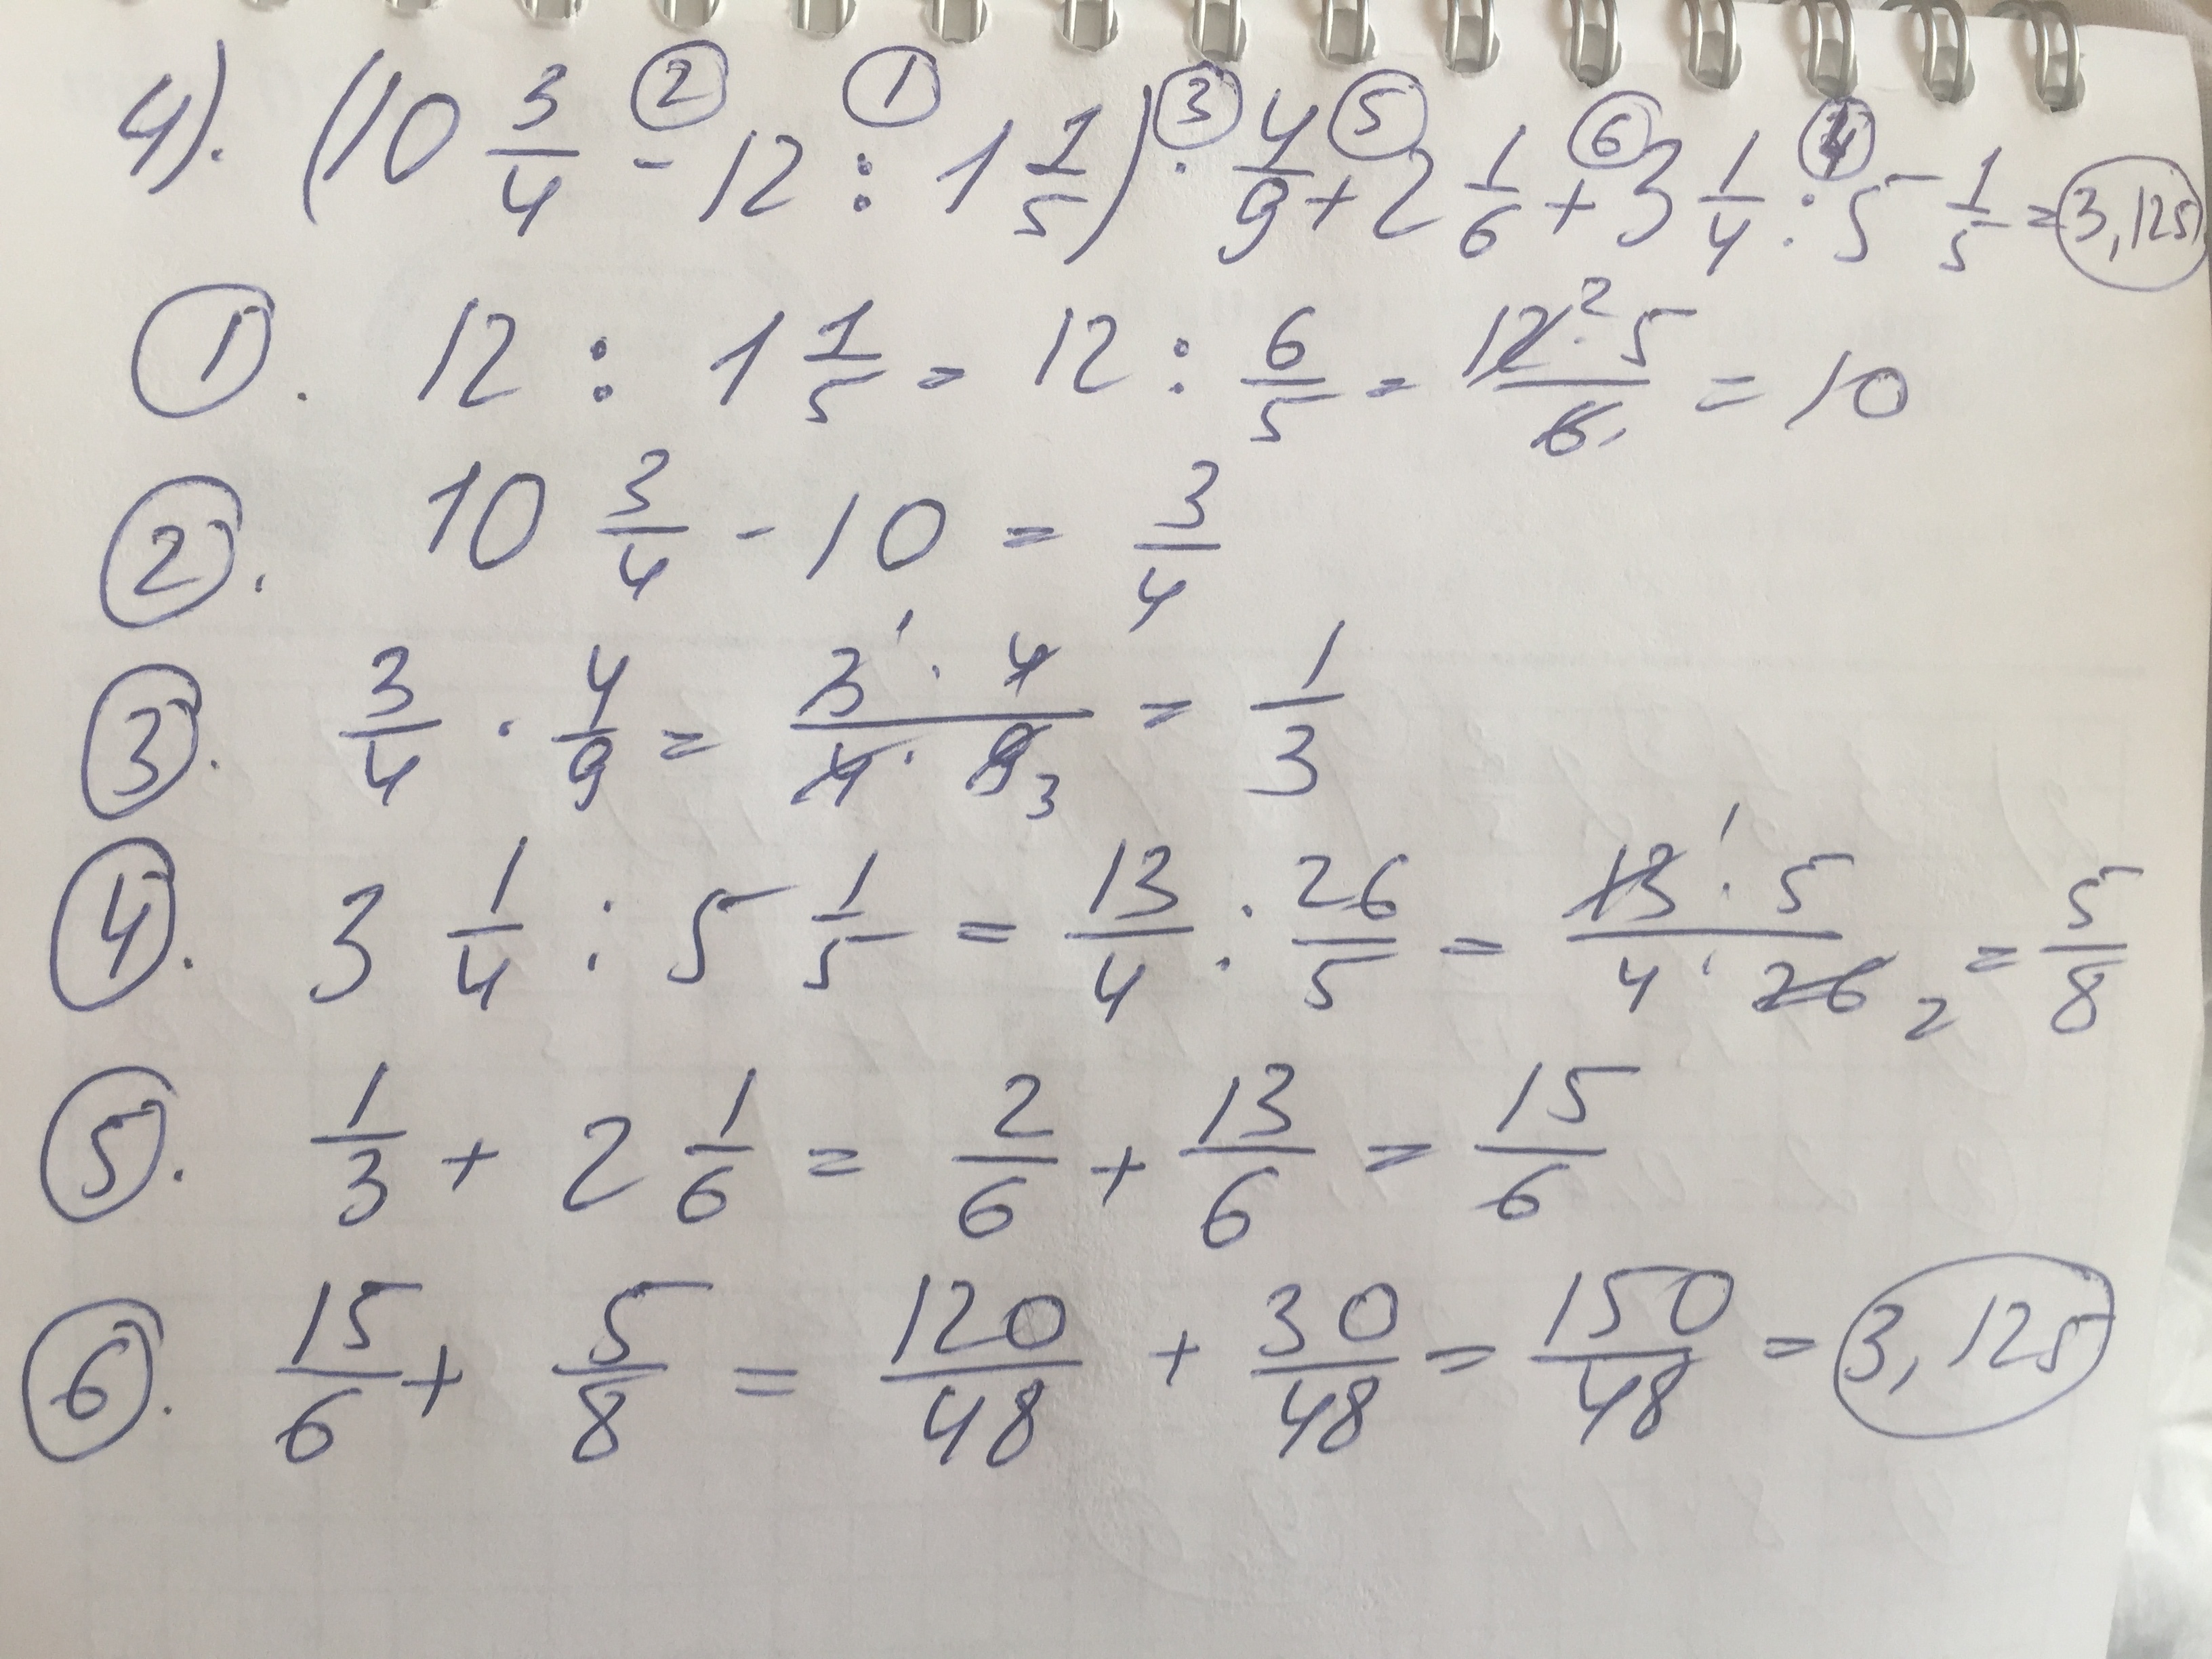 4). (10 3/4 - 12 : 1 1/5) · 4/9 + 2 1/6 + 3 1/4 : 5 1/5 = 3,125
② ① ③ ⑤ ⑥ ④
①. 12 : 1 1/5 = 12 : 6/5 = 12² · 5 / 6₁ = 10
②. 10 3/4 - 10 = 3/4
③. 3/4 · 4/9 = 3¹ · 4 / 4 · 9₃ = 1/3
④. 3 1/4 : 5 1/5 = 13/4 : 26/5 = 13¹ · 5 / 4 · 26₂ = 5/8
⑤. 1/3 + 2 1/6 = 2/6 + 13/6 = 15/6
⑥. 15/6 + 5/8 = 120/48 + 30/48 = 150/48 = 3,125